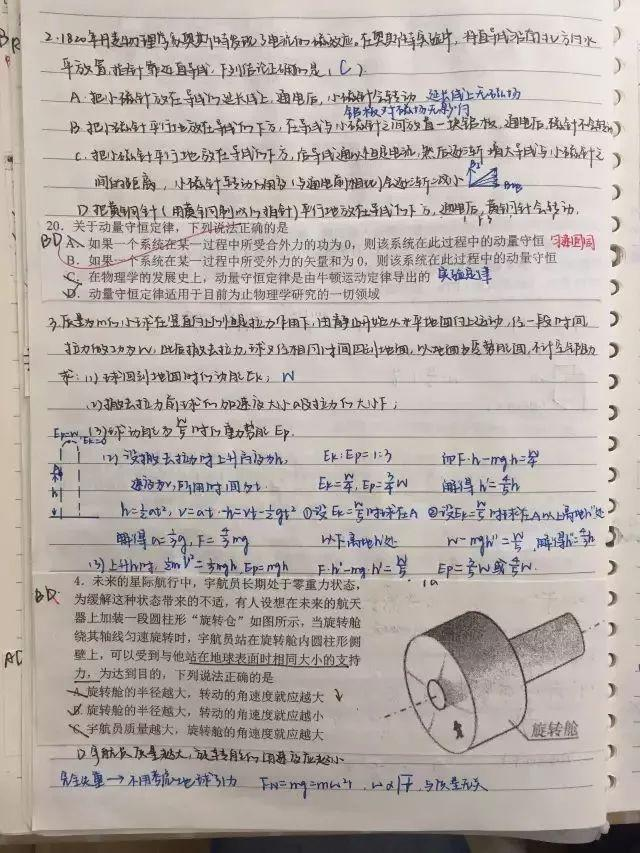 2. 1820年丹麦物理学家奥斯特发现了电流的磁效应。在奥斯特实验中，将直导线沿南北方向水
平放置，指针靠近直导线，下列结论正确的是（C）。
A. 把小磁针放在导线的延长线上，通电后，小磁针会转动 延长线上无磁场
铝板对磁场无影响
B. 把小磁针平行地放在导线的下方，在导线与小磁针之间放置一块铝板，通电后，磁针不会转动
C. 把小磁针平行地放在导线的下方，给导线通以恒定电流，然后逐渐增大导线与小磁针之
间的距离，小磁针转动的角度（与通电前相比）会逐渐减小
D. 把黄铜针（用黄铜制成的指针）平行地放在导线的下方，通电后，黄铜针会转动，
20. 关于动量守恒定律，下列说法正确的是
BD A. 如果一个系统在某一过程中所受合外力的功为0，则该系统在此过程中的动量守恒
B. 如果一个系统在某一过程中所受外力的矢量和为0，则该系统在此过程中的动量守恒
C. 在物理学的发展史上，动量守恒定律是由牛顿运动定律导出的 实验定律
D. 动量守恒定律适用于目前为止物理学研究的一切领域
3. 质量为m的小球在竖直向上的恒定拉力作用下，由静止开始从水平地面向上运动，经一段时间，
拉力做功为W，此后撤去拉力，球又经相同时间回到地面，以地面为零势能面，不计空气阻力
求：(1)球回到地面时的动能Ek； W
(2)撤去拉力前球的加速度大小a及拉力的大小F；
(3)球动能为W/5时的重力势能Ep.
Ep=W Ek=0
(2)设撤去拉力时上升高度为h， Ek:Ep=1:3 即F·h-mgh=W/4
速度为v，所用时间为t. Ek=W/4，Ep=3/4W 解得h'=4/5h
h=1/2at²，v=at，-h=vt-1/2gt² ①设Ek=W/5时球在A ②设Ek=W/5时球在A以上离地h'处
解得a=1/3g，F=4/3mg 以下离地h'处 W-mgh'=W/5，解得h'=
(3)上升h时，1/2mv²=1/3mgh，Ep=mgh F·h'-mg·h'=W/5 Ep=3/5W或4/5W.
BD. 4. 未来的星际航行中，宇航员长期处于零重力状态，
为缓解这种状态带来的不适，有人设想在未来的航天
器上加装一段圆柱形“旋转仓”如图所示，当旋转舱
绕其轴线匀速旋转时，宇航员站在旋转舱内圆柱形侧
壁上，可以受到与他站在地球表面时相同大小的支持
力，为达到目的，下列说法正确的是
A. 旋转舱的半径越大，转动的角速度就应越大 ↓
B. 旋转舱的半径越大，转动的角速度就应越小
C. 宇航员质量越大，旋转舱的角速度就应越大
旋转舱
D. 宇航员质量越大，旋转舱的角速度应越小
完全失重→不用考虑地球引力 FN=mg=mω²r，ω∝，与质量无关